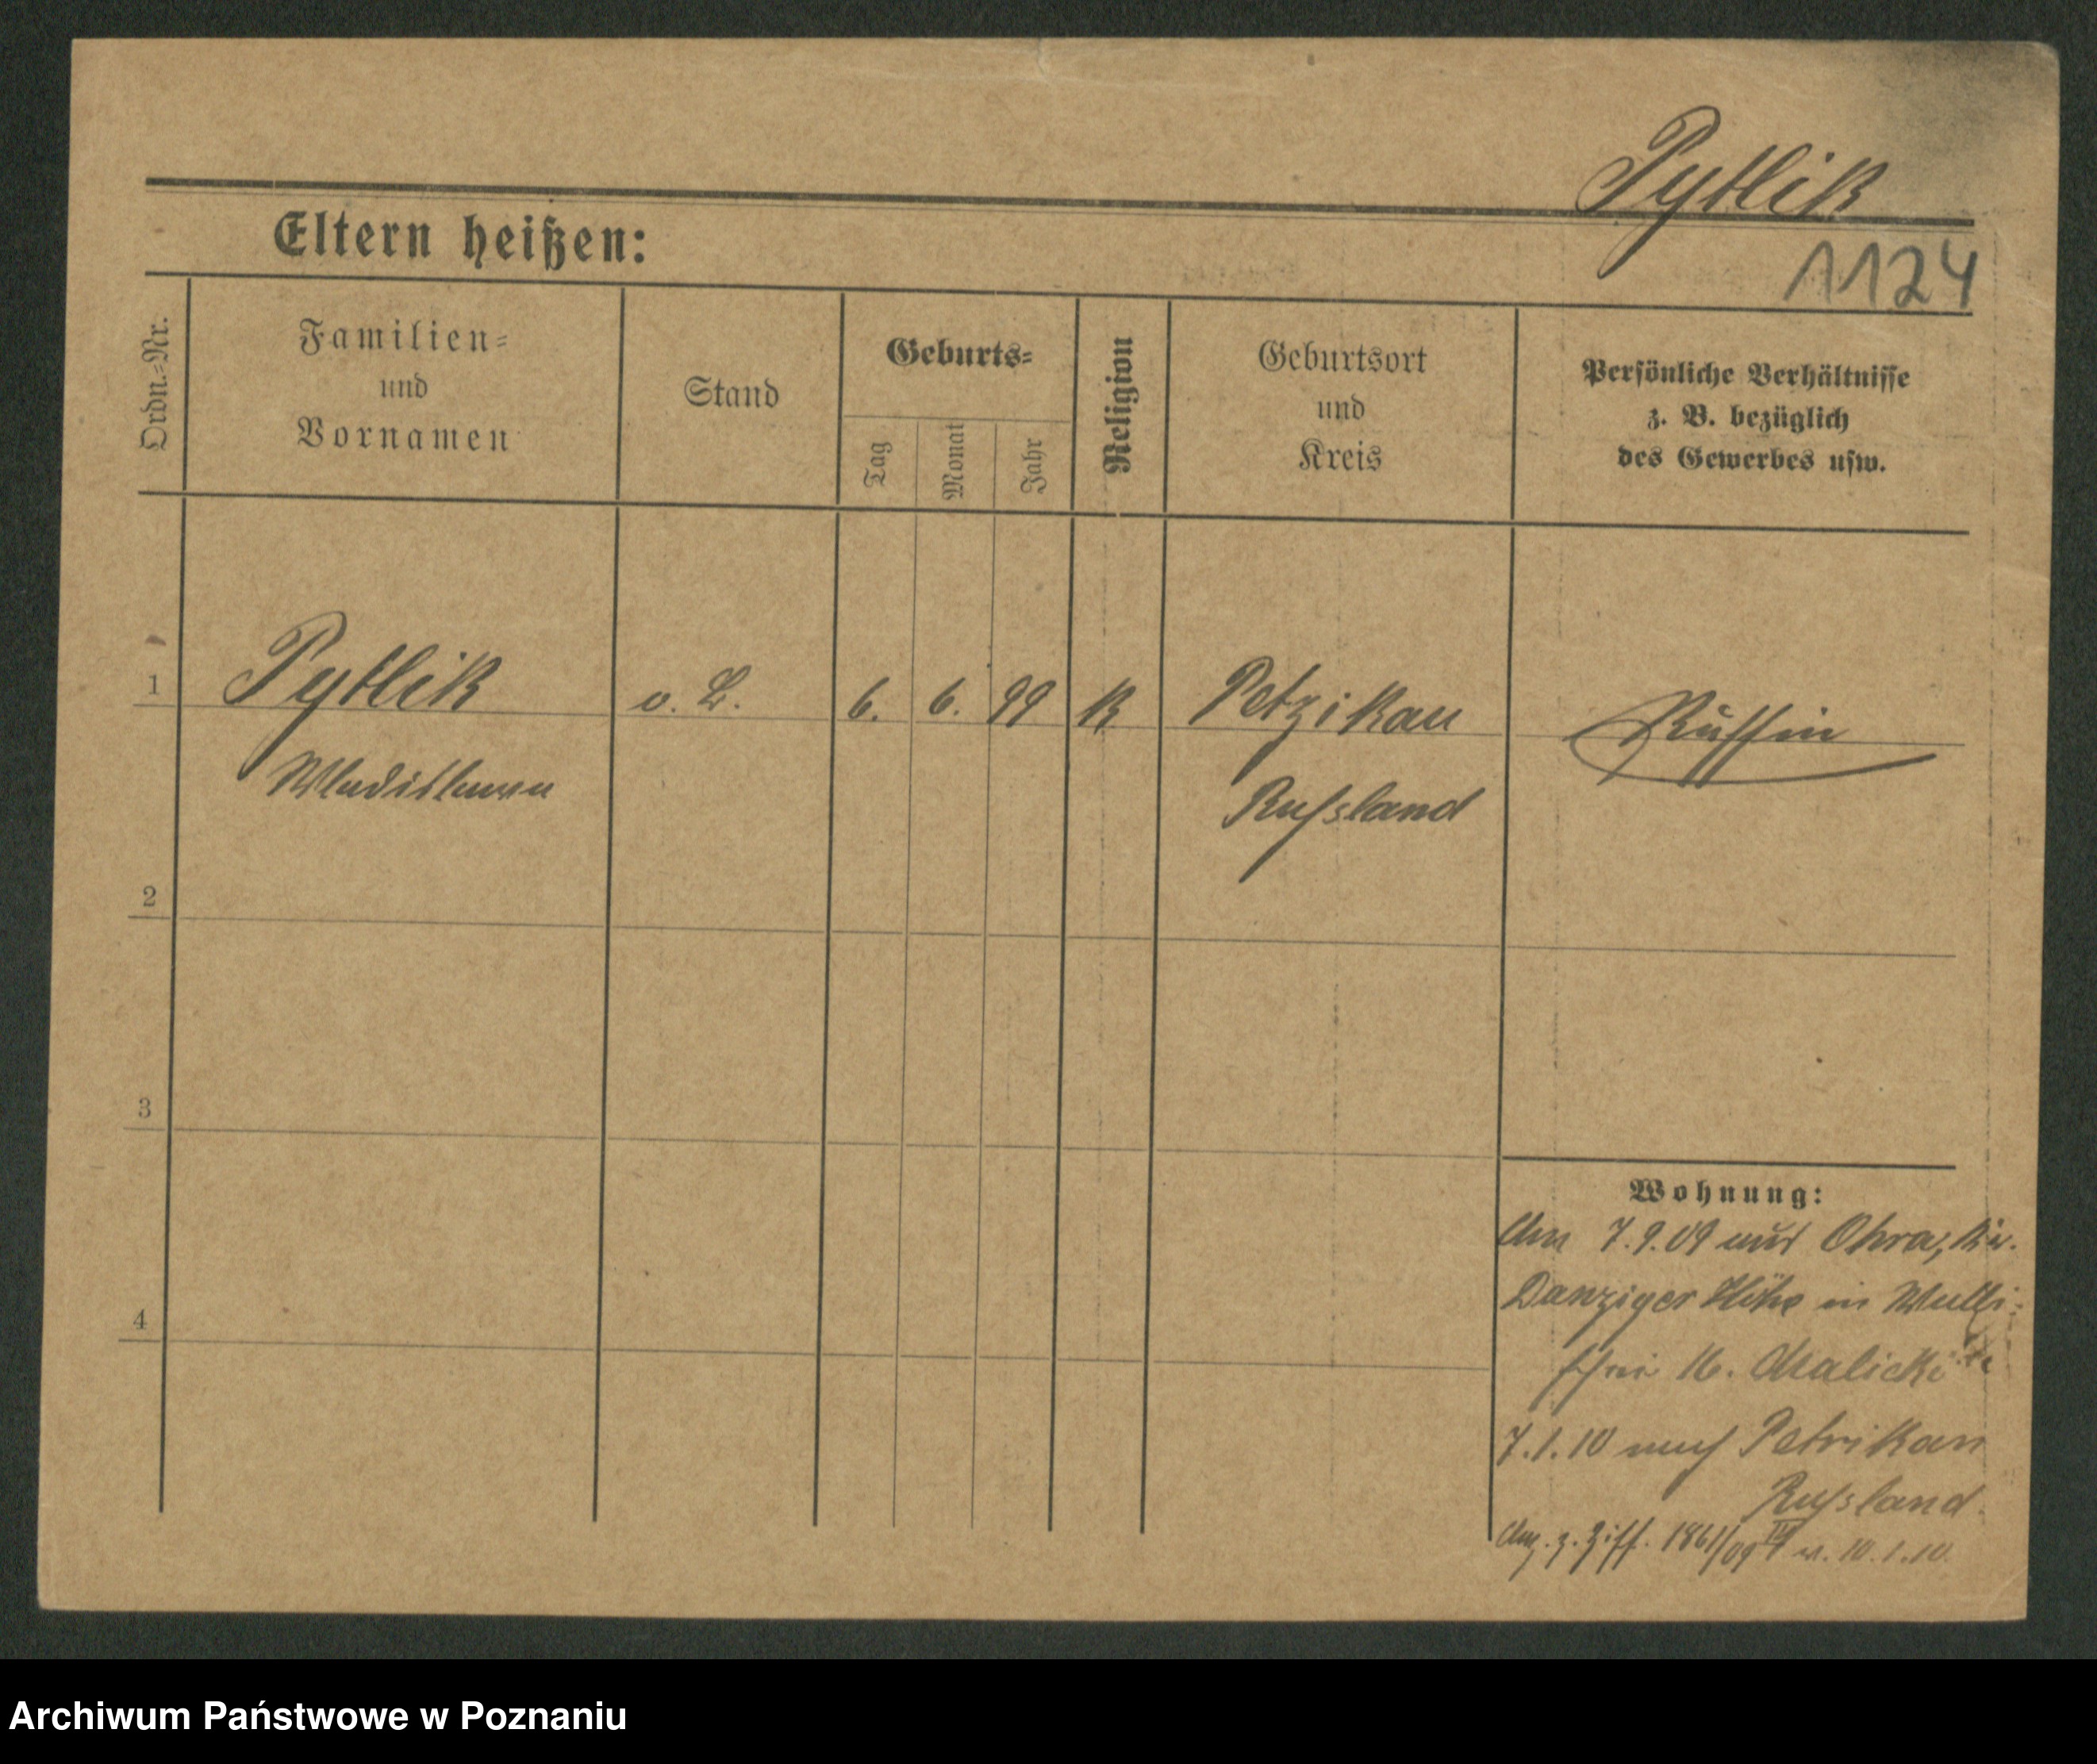 Pytlik
Eltern heißen:
1124
Ordn.-Nr.
Familien-
und
Vornamen
Stand
Geburts-
Tag
Monat
Jahr
Religion
Geburtsort
und
Kreis
Persönliche Verhältnisse
z. B. bezüglich
des Gewerbes usw.
1
Pytlik
o. L.
6.
6.
99
K
Petzikau
Russin
Wladislawa
Russland
2
3
4
Wohnung:
Am 7.9.09 aus Ohra, Kr.
Danziger Höhe in
16. Malicki
7.1.10 nach Petrikau
Russland.
Anz. z. Ziff. 1861/09 IV v. 10.1.10.
Archiwum Państwowe w Poznaniu